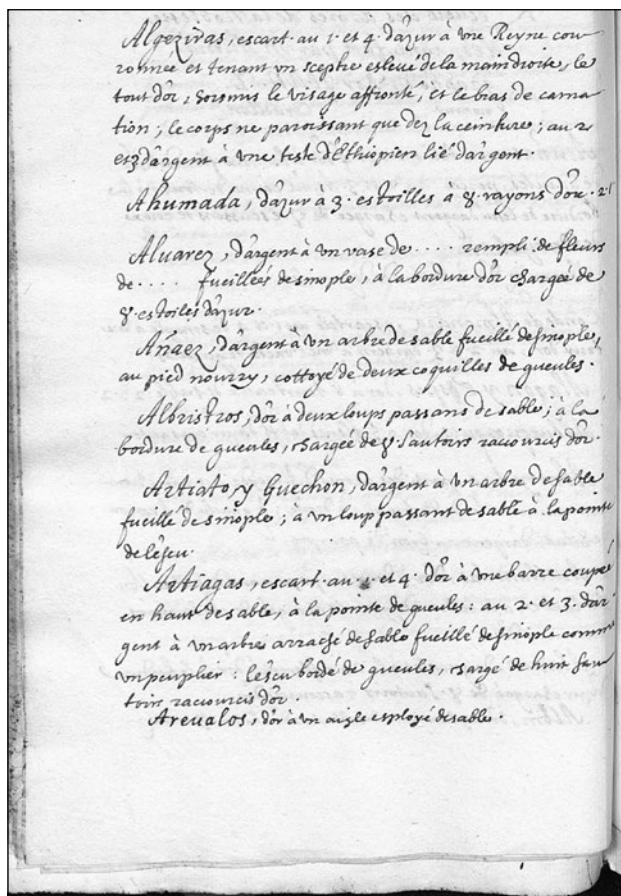 Algeziras, escart. au 1. et 4. d'azur à vne Reyne cou-
ronnee et tenant vn sceptre esleué de la main droite, le
tout d'or, horsmis le visage affronté, et le bras de carna
tion, le corps ne paroissant que dez la ceinture; au 2
et 3 d'argent à vne teste d'Ethiopien lié d'argent.
Ahumada, d'azur à 3. estoilles à 8. rayons d'or. 2.1
Aluarez, d'argent à vn vase de . . . . . rempli de fleurs
de . . . . fueillées de sinople, à la bordure d'or chargée de
8. estoiles d'azur.
Añaez, d'argent à vn arbre de sable fueillé de sinople,
au pied nourry, cottoyé de deux coquilles de gueules.
Albristros, d'or à deux loups passans de sable; à la
bordure de gueules, chargée de 8. sautoirs racourcis d'or.
Artiato, y Guechon, d'argent à vn arbre de sable
fueillé de sinople; à vn loup passant de sable à la pointe
de l'escu.
Artiagas, escart. au 1. et 4. d'or à vne barre coupé
en haut de sable, à la pointe de gueules: au 2. et 3. d'ar
gent à vn arbre arraché de sable fueillé de sinople comme
vn peuplier: l'escu bordé de gueules, chargé de huit sau
toirs racourcis d'or.
Areualos, d'or à vn aigle esployé de sable.